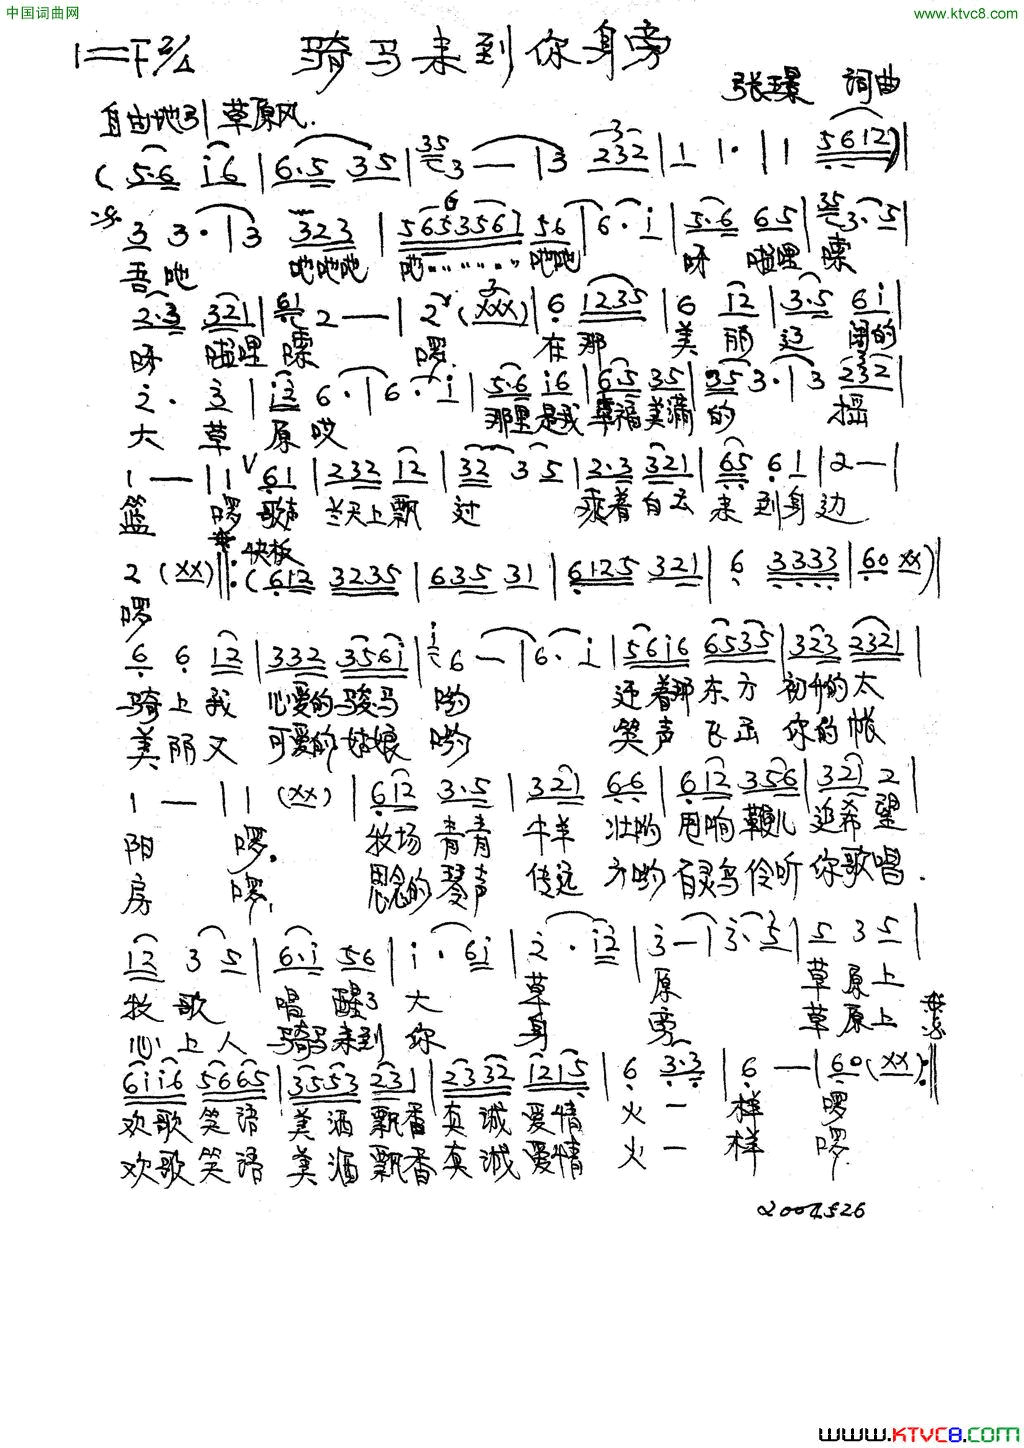 中国词曲网
www.ktvc8.com
1=F 2/4 骑马来到你身旁
张璟 词曲
自由地引 草原风.
(5·6 i6 | 6·5 35 | 35 3 — | 3 232 | 1 1· | 1 5612) |
3 3· | 3 323 | 5653561 56 | 6· i | 5·6 65 | 35 3· 5 |
吾吔 吔吔吔 吔········ 吔吔 呀 嗞哩 嗦
2·3 321 | 61 2 — | 2 (xxx) | 6 1235 | 6 12 | 3·5 6i |
呀 嗞哩 嗦 啰. 在那 美丽 辽阔的
2· 3 | i2 6· | 6· i | 5·6 i6 | 6·5 35 | 35 3· | 3 232 |
大 草 原哎 那里是我 幸福美满 的 摇
1 — | 1 V 61 | 232 12 | 32 3 5 | 2·3 321 | 65 6 1 | 2 — |
篮 啰 歌声 兰天上飘 过 乘着白云 来到身边
快板
2 (xx) ‖: (612 3235 | 635 31 | 6125 321 | 6 3333 | 60 xx) |
啰
6 6 12 | 332 356i | i 6 — | 6· i | 56i6 6535 | 323 2321 |
骑上我 心爱的骏马 哟 迎着那东方 初升的太
美丽又 可爱的姑娘 哟 笑声飞出 你的帐
1 — | 1 (xx) | 612 3·5 | 321 66 | 612 356 | 321 2 |
阳 啰. 牧场青青 牛羊 壮哟 甩响鞭儿 追希望
房 啰, 思念的琴声 传远 方哟 百灵鸟伶听 你歌唱.
12 3 5 | 6·i 56 | i· 6i | 2· i2 | 3 — | 3· 5 | 5 3 5 |
牧歌 唱醒了 大 草 原 草原上
心上人 骑马来到 你 身 旁 草原上
6ii6 5665 | 3553 231 | 2332 1215 | 6 3·3 | 6 — | 60 (xx) :‖
欢歌笑语 美酒飘香 真诚爱情 火一 样 啰
欢歌笑语 美酒飘香 真诚爱情 火一 样 啰.
www.KTVC8.com